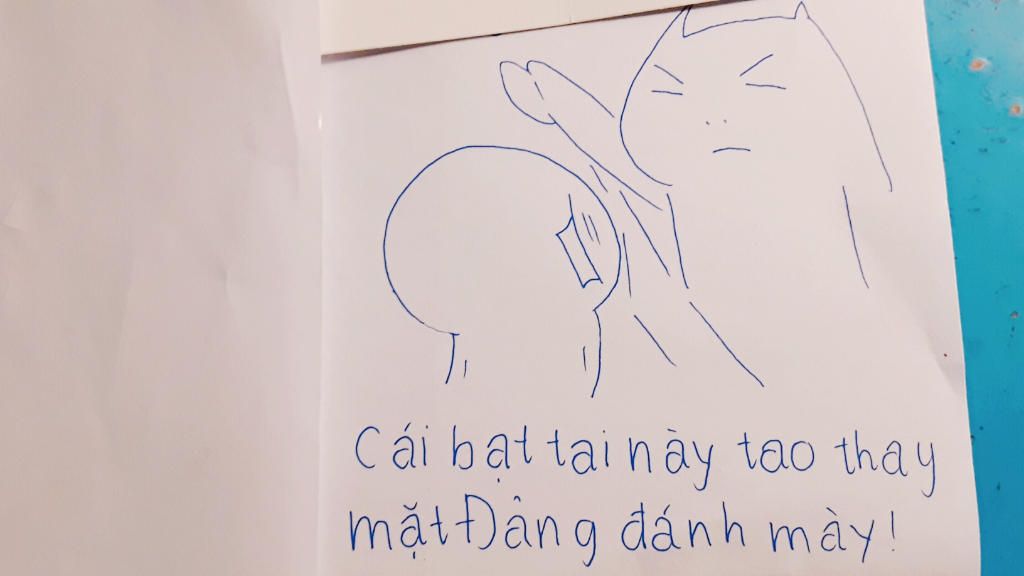 Cái bạt tai này tao thay
mặt Đảng đánh mày!